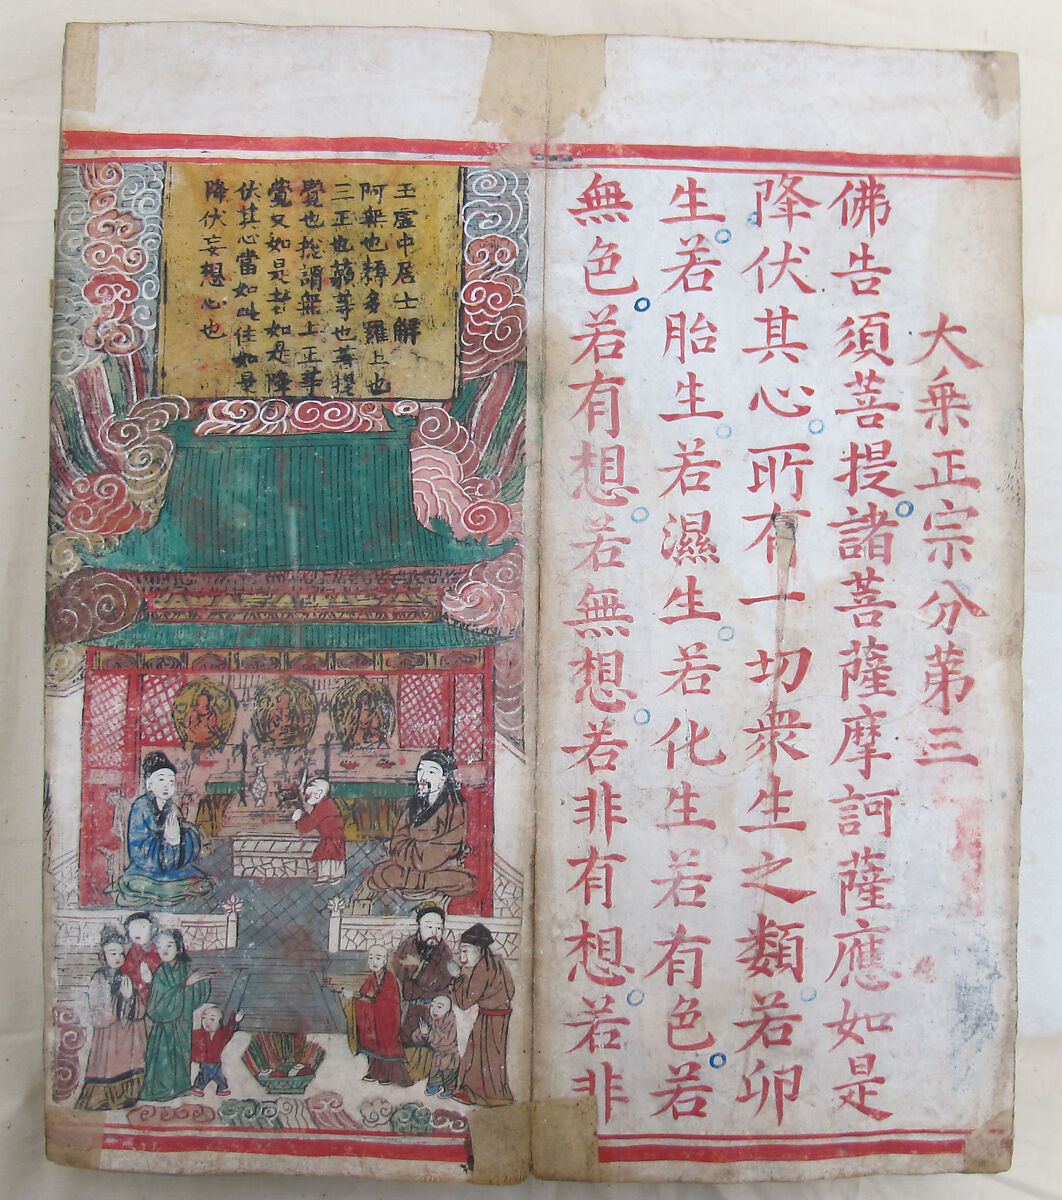 大乗正宗分第三
佛告須菩提諸菩薩摩訶薩應如是
降伏其心所有一切衆生之類若卵
生若胎生若濕生若化生若有色若
無色若有想若無想若非有想若非
王虛中居士解
阿無也耨多羅上也
三正也藐等也菩提
覺也捴謂無上正等
覺又如是者如是降
伏其心當如此住如是
降伏妄想心也